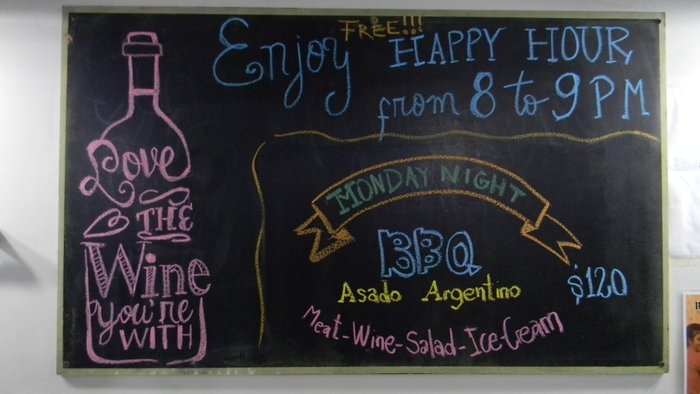 FREE!!!
Enjoy HAPPY HOUR
from 8 to 9 PM
Love
THE
Wine
you're
WITH
MONDAY NIGHT
BBQ
Asado Argentino
$120
Meat-Wine-Salad-Ice-Cream